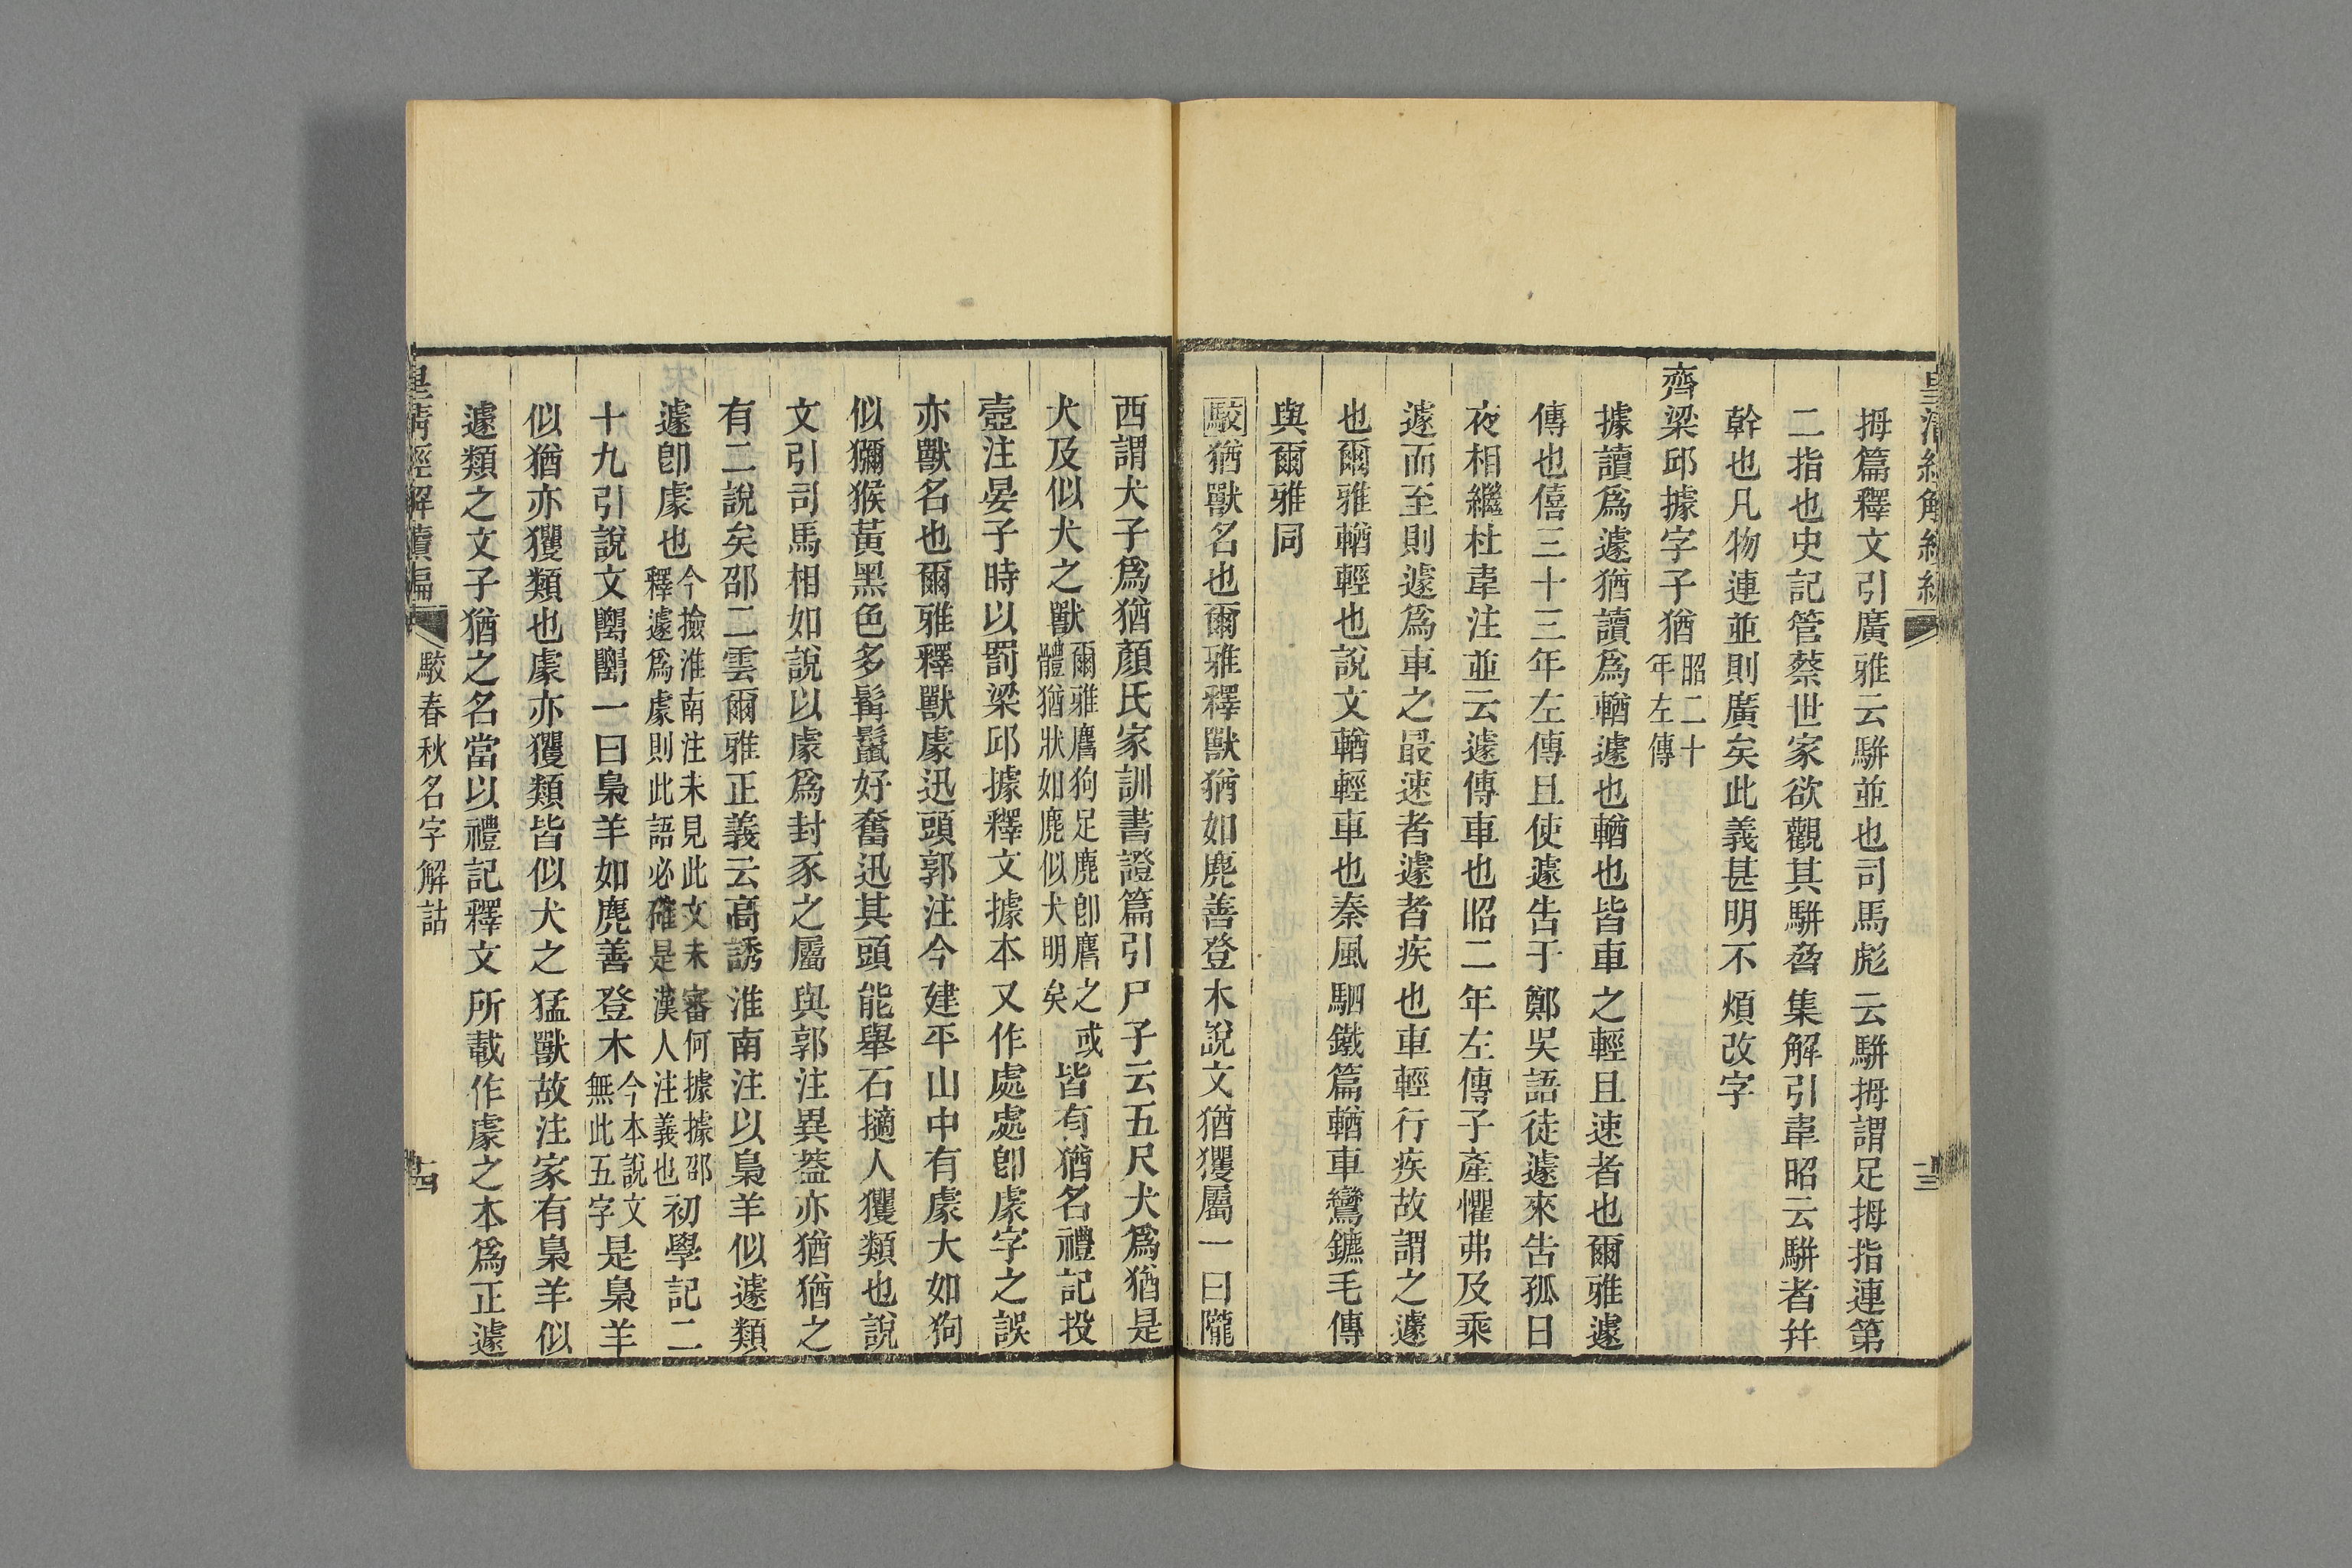 拇篇釋文引廣雅云駢並也司馬彪云駢拇謂足拇指連第
二指也史記管蔡世家欲觀其駢脅集解引韋昭云駢者并
幹也凡物連並則廣矣此義甚明不煩改字
齊梁邱據字子猶昭二十年左傳
據讀爲遽猶讀爲輶遽也輶也皆車之輕且速者也爾雅遽
傳也僖三十三年左傳且使遽告于鄭吳語徒遽來告孤日
夜相繼杜韋注並云遽傳車也昭二年左傳子產懼弗及乘
遽而至則遽爲車之最速者遽者疾也車輕行疾故謂之遽
也爾雅輶輕也說文輶輕車也秦風駟鐵篇輶車鸞鑣毛傳
與爾雅同
駮猶獸名也爾雅釋獸猶如麂善登木說文猶玃屬一曰隴
西謂犬子爲猶顏氏家訓書證篇引尸子云五尺犬爲猶是
犬及似犬之獸爾雅麕狗足鹿卽麕之體猶狀如鹿似犬明矣或皆有猶名禮記投
壺注晏子時以罰梁邱據釋文據本又作處處卽豦字之誤
亦獸名也爾雅釋獸豦迅頭郭注今建平山中有豦大如狗
似獼猴黃黑色多髯鬣好奮迅其頭能舉石擿人玃類也說
文引司馬相如說以豦爲封豕之屬與郭注異葢亦猶猶之
有二說矣邵二雲爾雅正義云高誘淮南注以梟羊似遽類
遽卽豦也今撿淮南注未見此文未審何據據邵釋遽爲豦則此語必確是漢人注義也初學記二
十九引說文䦗䦗一曰梟羊如麂善登木今本說文無此五字是梟羊
似猶亦玃類也豦亦玃類皆似犬之猛獸故注家有梟羊似
遽類之文子猶之名當以禮記釋文所載作豦之本爲正遽
皇清經解續編
駮春秋名字解詁
十四